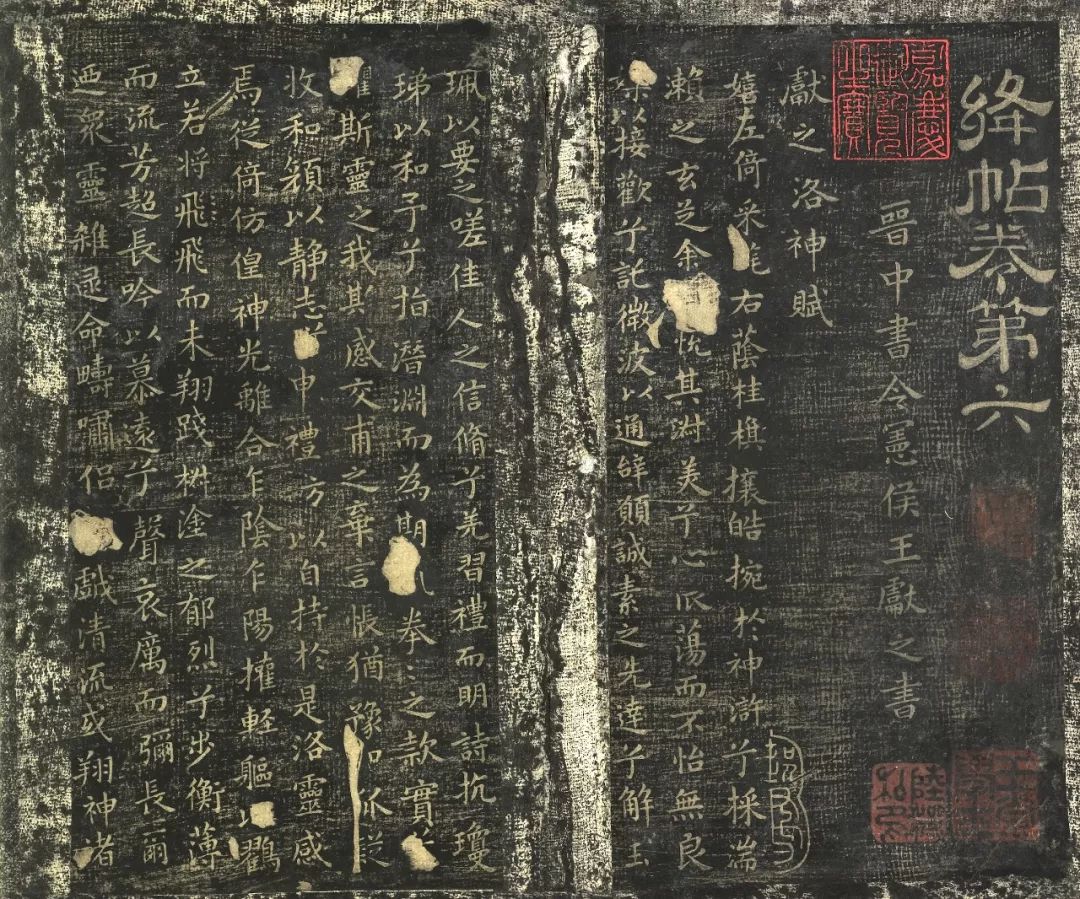 絳帖卷第六
嘉慶御覽之寶
晉中書令憲侯王獻之書
獻之洛神賦
嬉左倚采旄右蔭桂旗攘皓捥於神滸兮採湍
瀨之玄芝余恱其淑美兮心振蕩而不怡無良
以接歡兮託微波以通辝願誠素之先達兮解玉
珮以要之嗟佳人之信脩兮羌習禮而明詩抗瓊
珶以和予兮指潛淵而為期拳〻之款實兮
懼斯靈之我其感交甫之棄言悵猶豫而狐疑
收和顏以靜志兮申禮方以自持於是洛靈感
焉徙倚仿偟神光離合乍陰乍陽擢輕軀以鸖
立若將飛飛而未翔踐椒塗之郁烈兮步衡薄
而流芳超長吟以慕遠兮聲哀厲而彌長爾
迺衆靈雜遝命疇嘯侶戲清流或翔神渚